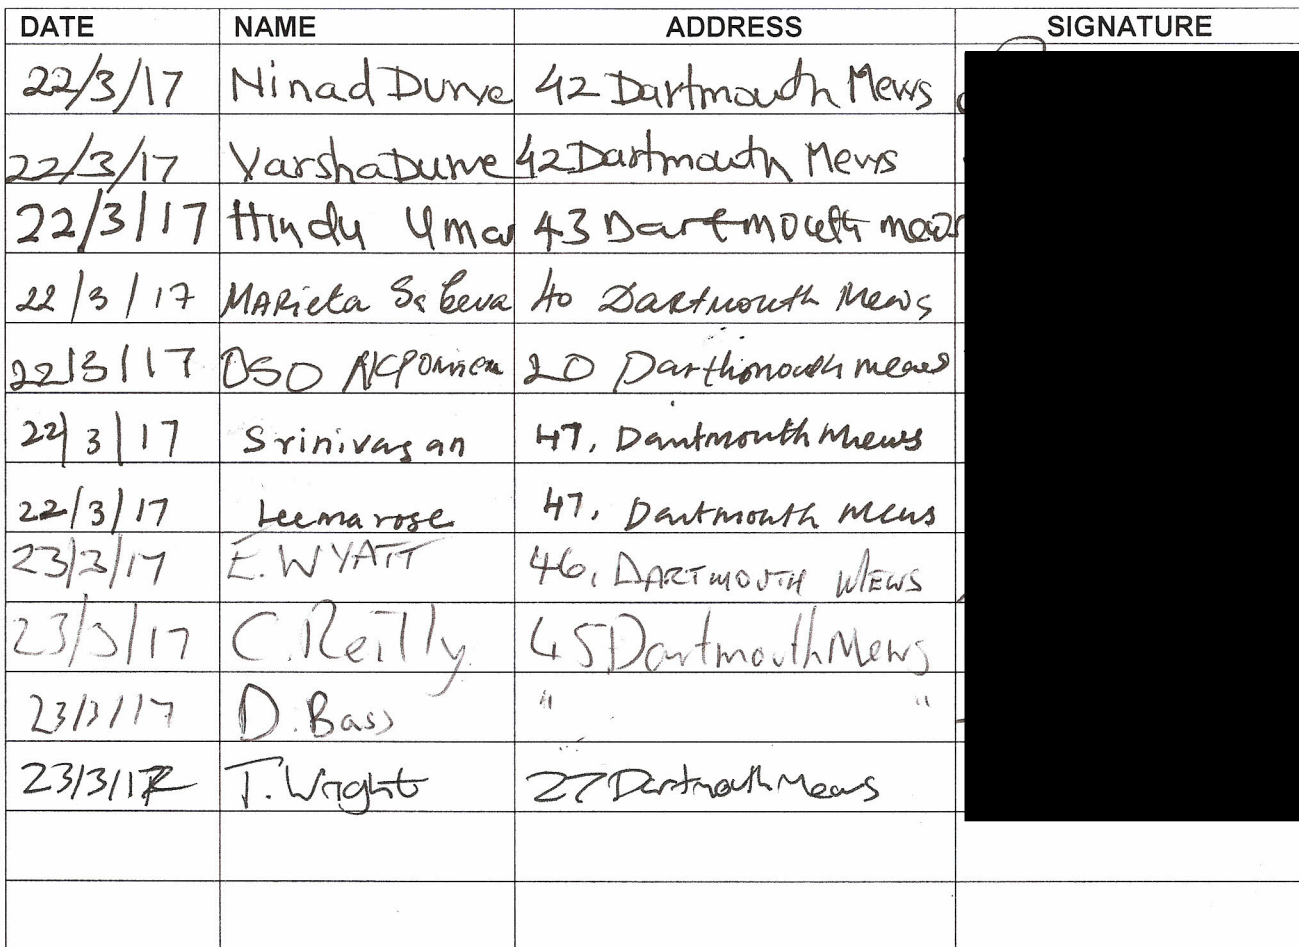 DATE NAME ADDRESS SIGNATURE
22/3/17 Ninad Durve 42 Dartmouth Mews
22/3/17 Varsha Durve 42 Dartmouth Mews
22/3/17 Hindu Umar 43 Dartmouth mews
22/3/17 MARieta 40 Dartmouth Mews
22/3/17 OSO 20 Darthmouth mews
22/3/17 Srinivasan 47, Dartmouth Mews
22/3/17 Leema rose 47, Dartmouth Mews
23/3/17 E. WYATT 46, DARTMOUTH MEWS
23/3/17 C. Reilly 45 Dartmouth Mews
23/3/17 D. Bass " "
23/3/17 T. Wright 27 Dartmouth Mews